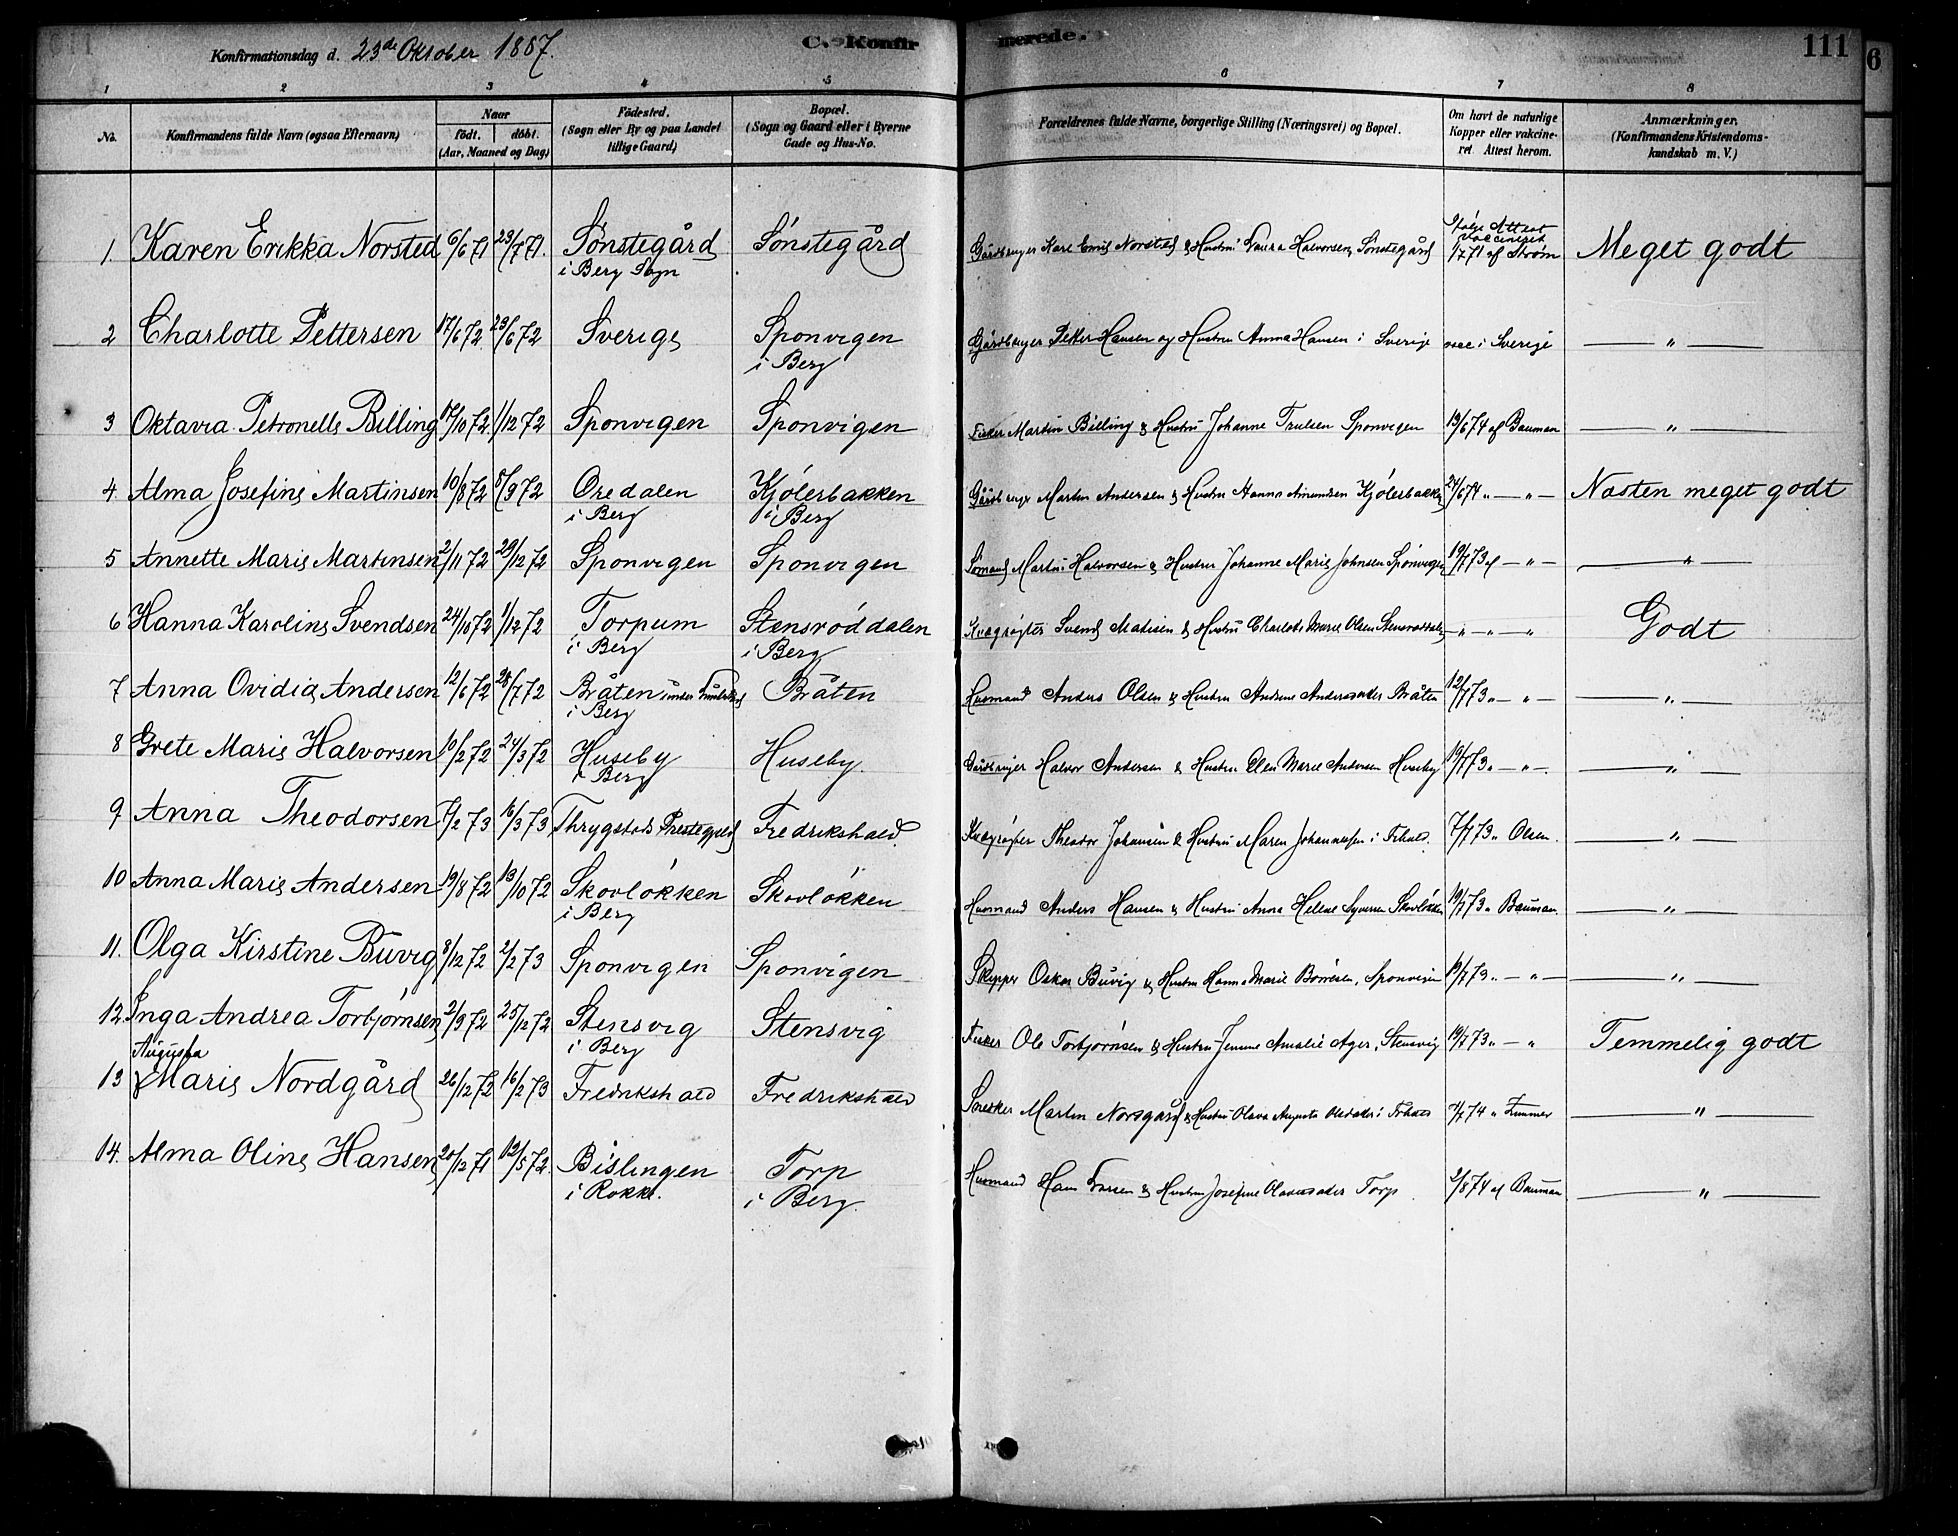 Konfirmationsdag d. 23de Oktober 1887.
C. Konfirmerede.
111
6
1 2 3 4 5 6 7 8
No.
Konfirmandens fulde Navn (ogsaa Efternavn)
Naar
födt. döbt.
(Aar, Maaned og Dag)
Födested.
(Sogn eller By og paa Landet
tillige Gaard)
Bopæl.
(Sogn og Gaard eller i Byerne
Gade og Hus-No.
Forældrenes fulde Navne, borgerlige Stilling (Næringsvei) og Bopæl.
Om havt de naturlige
Kopper eller vakcine-
ret Attest herom.
Anmærkninger.
(Konfirmandens Kristendoms-
kundskab m. V.)
1. Karen Erikka Norsted 6/6 71 23/7 71. Sønstegård Sønstegård Gårdbruger Karl Emil Norsted & Hustru Laura Halvorsen, Sønstegård Ifølge Attest vaccineret 1/7 71 af Strøm Meget godt
i Berg Sogn
2 Charlotte Pettersen 17/6 72 23/6 72 Sverige Sponvigen Gårdbruger Petter Hansen og Hustru Anna Hansen i Sverige vacc i Sverige — " —
i Berg
3 Oktavia Petronelle Billing 17/10 72 1/12 72 Sponvigen Sponvigen Fisker Martin Billing & Hustru Johanne Trulsen Sponvigen 13/6 74 af Bauman — " —
4. Alma Josefine Martinsen 10/8 72 8/9 72 Oredalen Kjólerbakken Gårdbruger Martin Andersen & Hustru Hanna Amundsen Kjólerbakken 24/6 74 " — " — Næsten meget godt
i Berg i Berg
5 Annette Marie Martinsen 2/11 72 29/12 72 Sponvigen Sponvigen Sømand Martin Halvorsen & Hustru Johanne Marie Johnsen Sponvigen 19/7 73 af — " — — " —
6 Hanna Karoline Svendsen 24/10 72 1/12 72 Torpum Stensróddalen Kvægrøgter Svend Madsen & Hustru Charlotte Marie Olsen Stensróddalen — " — " — " Godt
i Berg i Berg
7 Anna Ovidia Andersen 12/6 72 28/7 72 Bråten under Bråten Husmand Anders Olsen & Hustru Andrine Andersdatter Bråten 12/7 73 " — " — — " —
i Berg
8 Grete Marie Halvorsen 10/2 72 24/3 72 Huseby Huseby. Gårdbruger Halvor Andersen & Hustru Elen Marie Andersen Huseby 19/7 73 " — " —. — " —
i Berg
9 Anna Theodorsen 7/2 73 16/3 73 Thrygstads Prestegjeld Fredrikshald. Kvægrøgter Theodor Johansen & Hustru Maren Johannesen i Frhald. 7/7 73 " Olsen. — " —
10 Anna Marie Andersen 19/8 72 13/10 72 Skovlókken Skovlókken Husmand Anders Hansen & Hustru Anna Helene Syversen Skovlókken 19/7 73 " Bauman. — " —
i Berg
11. Olga Kirstine Buvig 8/12 72 2/2 73 Sponvigen Sponvigen Skipper Oskar Buvig & Hustru Hanna Marie Borresen, Sponvigen 19/7 73 " — " — — " —
12. Inga Andrea Torbjørnsen 2/9 72 25/12 72 Stensvig Stensvig Fisker Ole Torbjørnsen & Hustru Jenine Amalie Ager, Stensvig 19/7 73 " — " Temmelig godt
i Berg
Augusta
13 Marie Nordgård 26/12 72 16/2 73 Fredrikshald Fredrikshald Snedker Martin Norsgård & Hustru Olava Augusta Olsdatter i Frhald 7/7 74 " — " —
14. Alma Oline Hansen 20/12 71 12/5 72. Bislingen Torp Husmand Hans Larsen & Hustru Josefine Olausdatter Torp. 2/8 74 af Bauman — " —
i Rokke. i Berg.